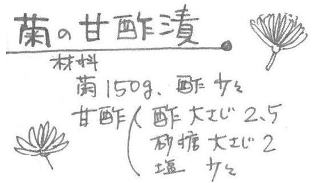 菊の甘酢漬
材料
菊150g、酢 少々
甘酢(酢 大さじ2.5
砂糖 大さじ2
塩 少々